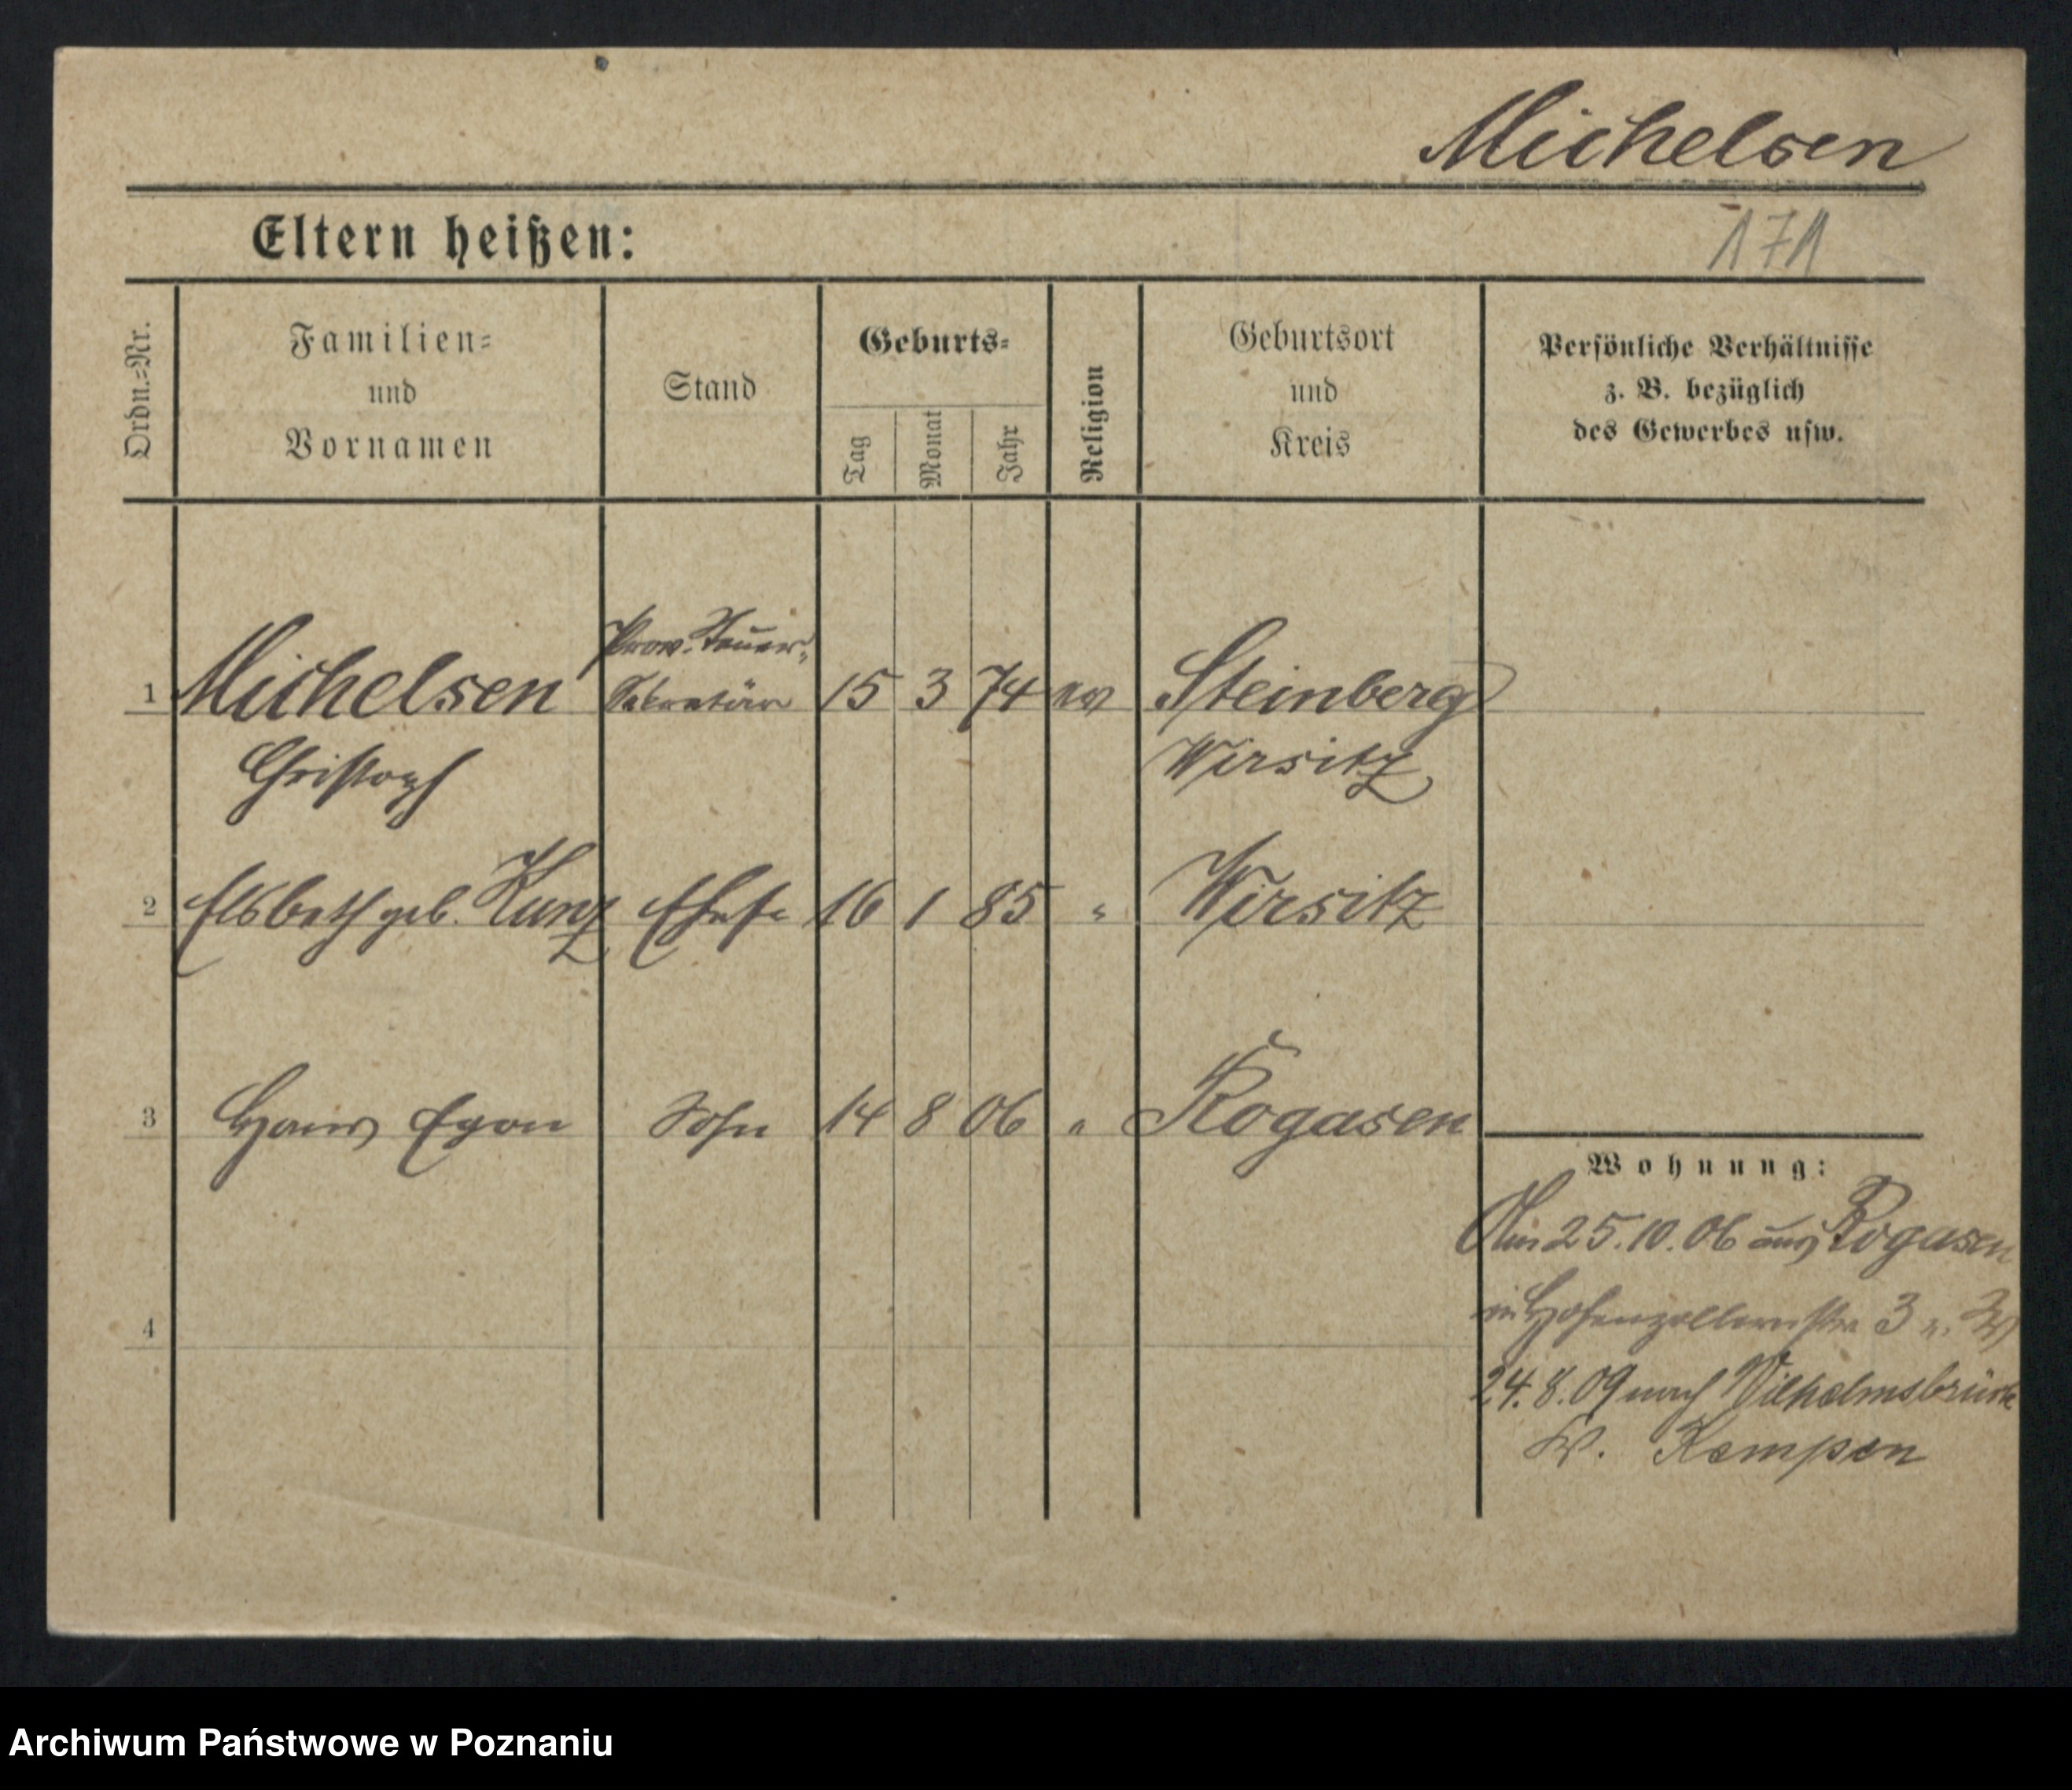 Michelsen
Eltern heißen:
171
Ordn.=Nr.
Familien=
und
Vornamen
Stand
Geburts=
Tag
Monat
Jahr
Religion
Geburtsort
und
Kreis
Persönliche Verhältnisse
z. B. bezüglich
des Gewerbes usw.
Prov. Steuer-
1 Michelsen Sekretär 15 3 74 ev Steinberg
Christoph Wirsitz
2 Elsbeth geb. Kunz Ehefr 16 1 85 " Wirsitz
3 Hans Egon Sohn 14 8 06 " Rogasen
Wohnung:
Am 25.10.06 aus Rogasen
in Hohenzollernstr 3
4
24.8.09 nach Wilhelmsbrück
Kr. Kempen
Archiwum Państwowe w Poznaniu